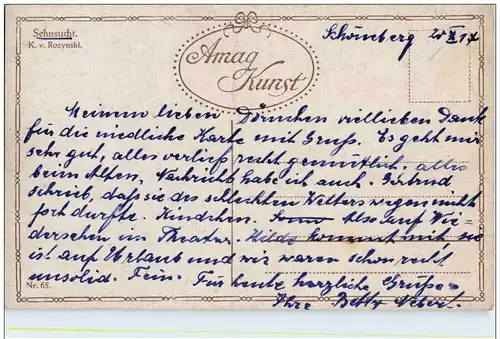 Sehnsucht.
K. v. Rozynski.
Amag
Kunst
Schömberg 20 X 17
Meinem lieben Dörnchen viellieben Dank
für die niedliche Karte mit Gruß. Es geht mir
sehr gut, alles verlief recht gemütlich, alles
beim Alten, Nachricht habe ich auch. Gertrud
schrieb, daß sie des schlechten Wetters wegen nicht
fort durfte. Kindchen. Also auf Wie-
dersehen im Theater. Hilde kommt mit sie
ist auf Urlaub und wir waren schon recht
unsolid. Fein. Für heute herzliche Grüße
Nr. 65.
Ihre Betty